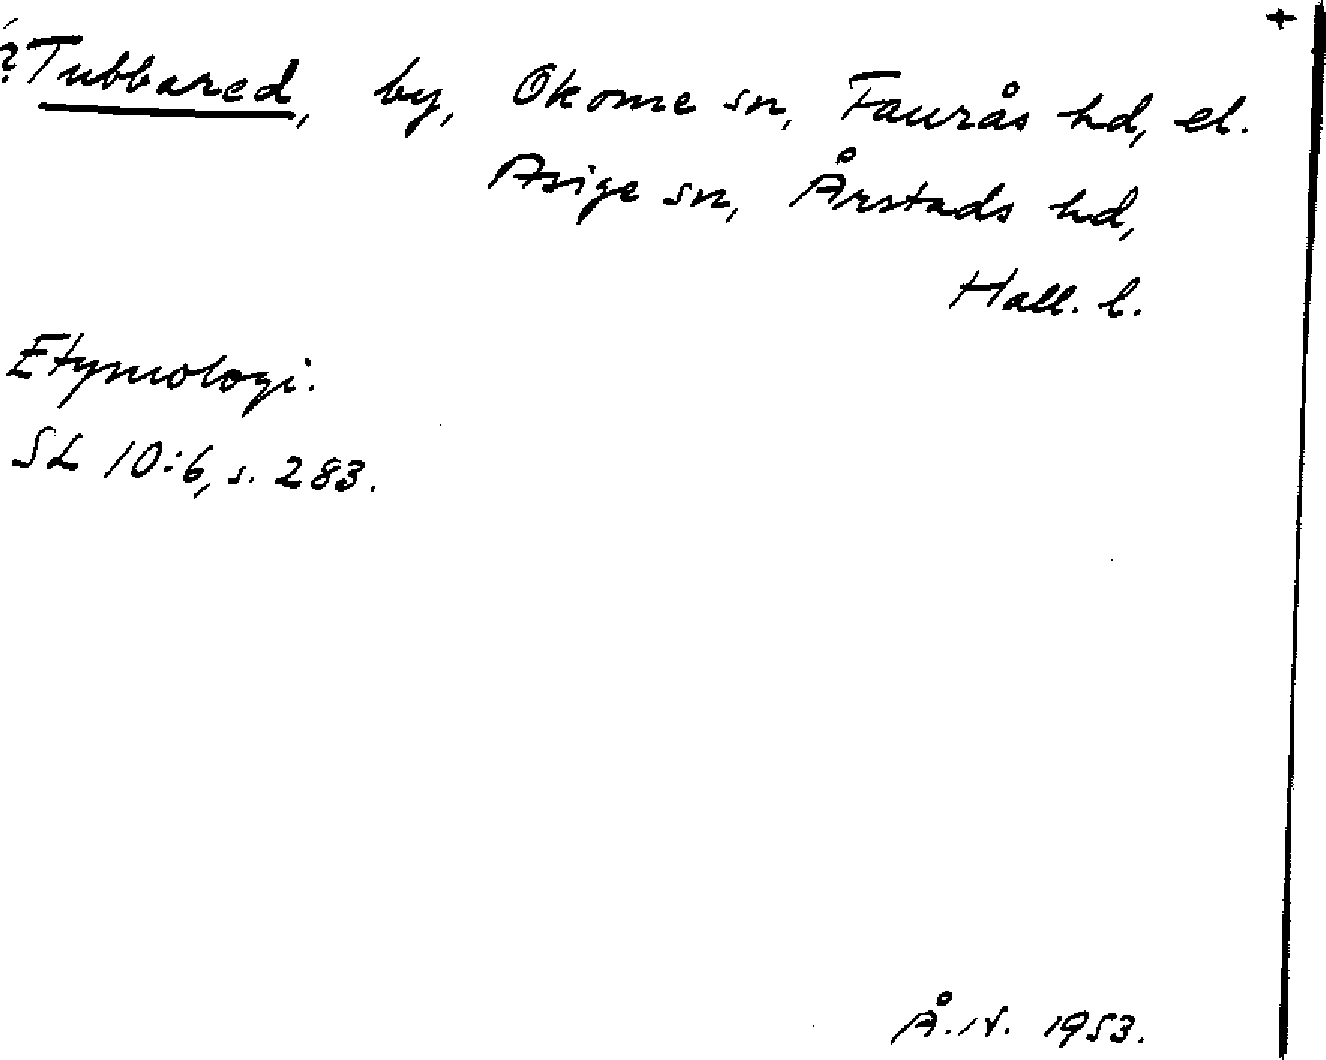 +
?Tubbared, by, Okome sn, Faurås hd, el.
Asige sn, Årstads hd,
Hall. l.
Etymologi.
SL 10:6, s. 283.
Å. N. 1953.